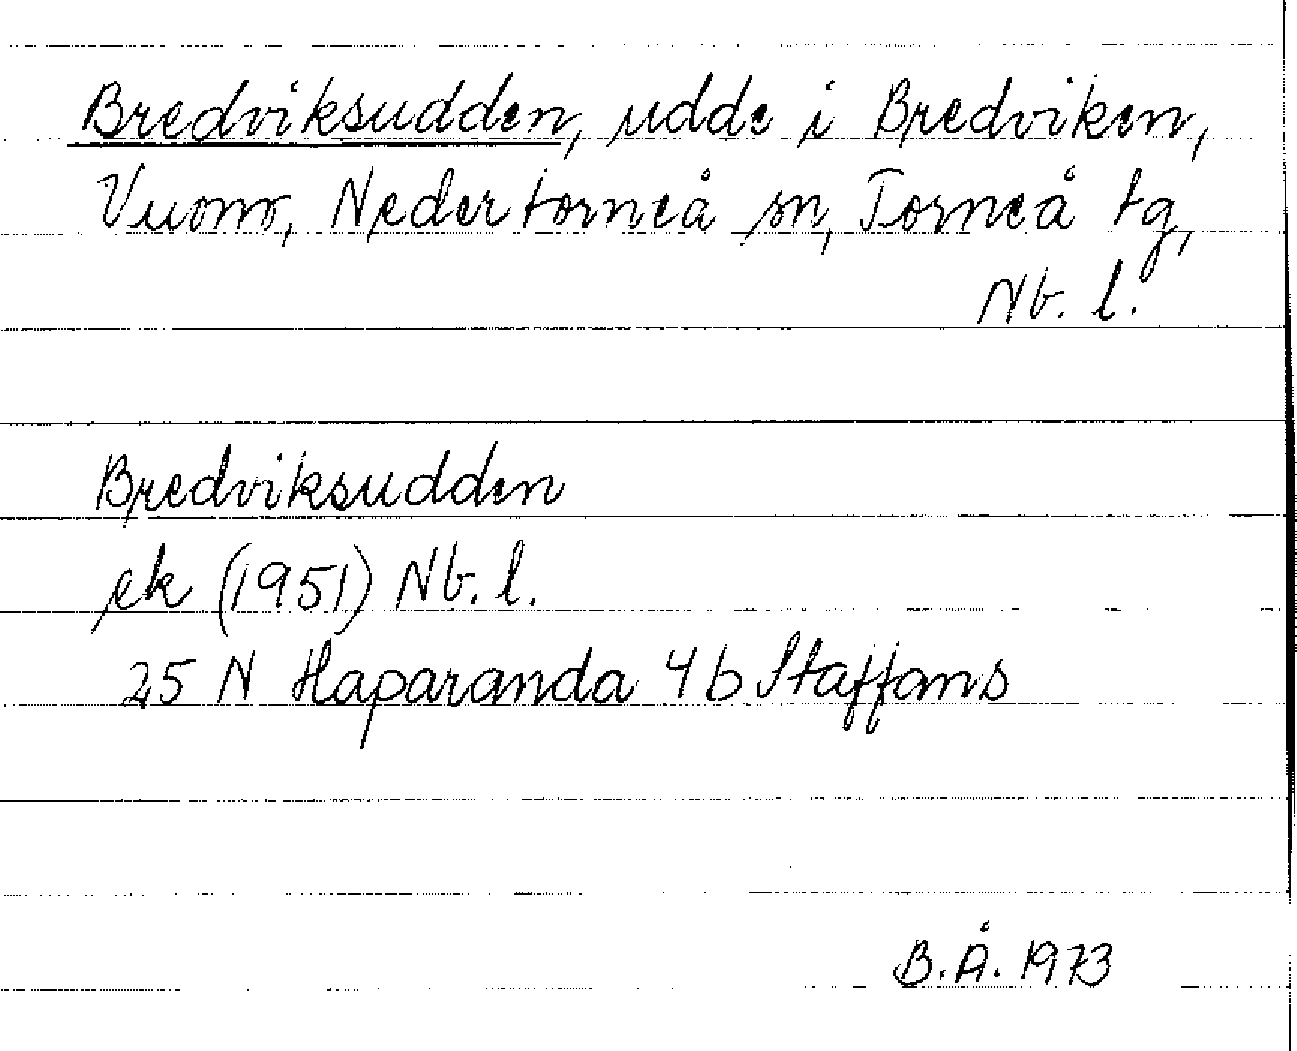 Bredviksudden, udde i Bredviken,
Vuono, Nedertorneå sn, Torneå tg,
Nb. l.
Bredviksudden
ek (1951) Nb. l.
25 N Haparanda 4 b Staffans
B.Å. 1973